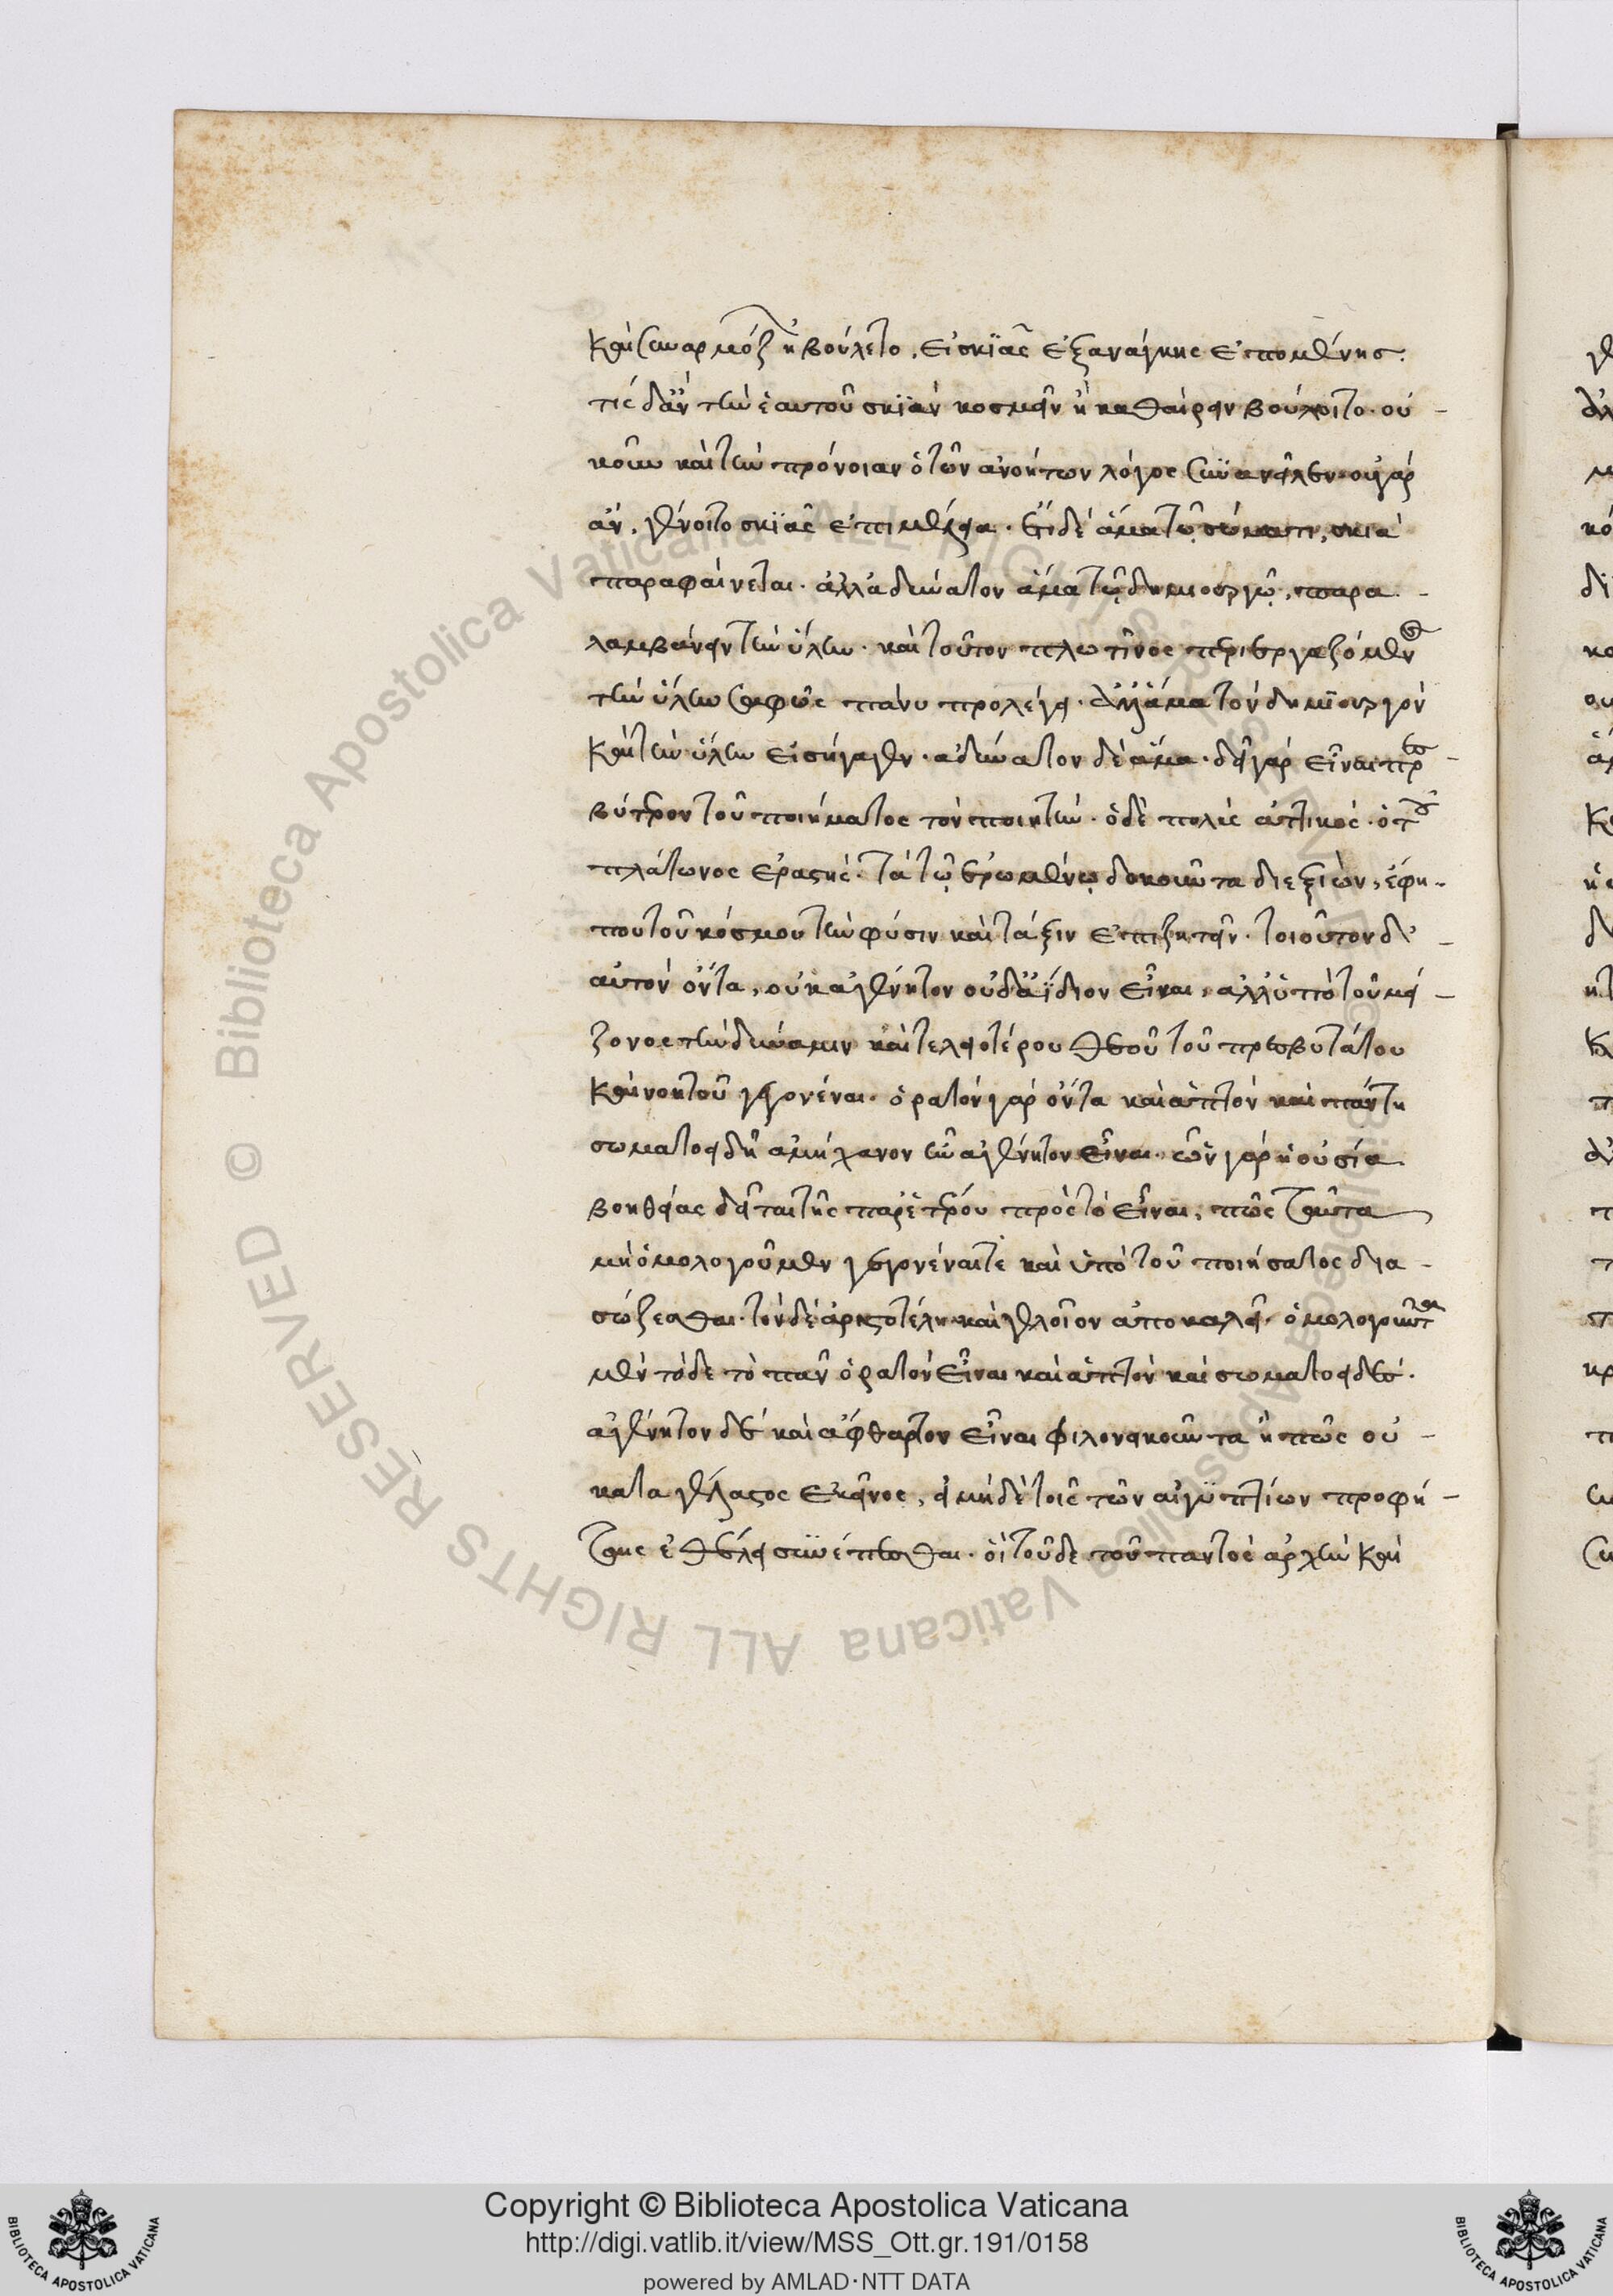 καὶ συναρμόζειν ἠβούλετο, εἰ σκϊᾶς ἐξανάγκης ἑπομένης.
τίς δἂν τὴν ἑαυτοῦ σκϊὰν κοσμεῖν ἢ καθαίρειν βούλοιτο. οὐ -
κοῦν καὶ τὴν πρόνοιαν ὁ τῶν ἀνοήτων λόγος συνανεῖλεν. οὐ γὰρ
ἂν, γένοιτο σκϊᾶς ἐπιμέλεια. εἰ δὲ ἅμα τῷ σώματι, σκιὰ
παραφαίνεται. ἀλλ' ἀδύνατον ἅμα τῷ δημιουργῷ, παρα -
λαμβάνειν τὴν ὕλην. καὶ τοῦτον πλωτῖνος περιεργαζόμενος
τὴν ὕλην σαφῶς πάνυ προλέγει. εἰ ἅμα τὸν δημϊουργὸν
καὶ τὴν ὕλην εἰσήγαγεν. ἀδύνατον δὲ ἅμα. δεῖ γὰρ εἶναι πρεσ -
βύτερον τοῦ ποιήματος τὸν ποιητήν. ὁ δὲ πολὺς ἀττικὸς. ὁ τοῦ
πλάτωνος ἐραστὴς. τὰ τῷ ἐρωμένῳ δοκοῦντα διεξϊὼν, ἔφη -
που τοῦ κόσμου τὴν φύσιν καὶ τάξιν ἐπιζητεῖν. τοιοῦτον δὲ -
αὐτὸν ὄντα, οὐκ ἀγένητον οὐδ' ἀΐδιον εἶναι, ἀλλ' ὑπὸ τοῦ μεί -
ζονος τὴν δύναμιν καὶ τελειοτέρου θεοῦ τοῦ πρεσβυτάτου
καὶ νοητοῦ γεγονέναι. ὁρατὸν γὰρ ὄντα καὶ ἁπτὸν καὶ πάντη
σωματοειδῆ ἀμήχανον ἦν ἀγένητον εἶναι. ὧν γὰρ ἡ οὐσία
βοηθείας δεῖται τῆς παρ' ἑτέρου πρὸς τὸ εἶναι, πῶς ταῦτα
μὴ ὁμολογοῦμεν γεγονέναι τὲ καὶ ὑπὸ τοῦ ποιήσατος δια -
σώζεσθαι. τὸν δὲ ἀριστοτέλη καὶ γελοῖον ἀποκαλεῖ. ὁμολογοῦντα
μὲν τόδε τὸ πᾶν ὁρατὸν εἶναι καὶ ἁπτὸν καὶ σωματοειδὲς.
ἀγένητον δὲ καὶ ἄφθαρτον εἶναι φιλονεικοῦντα ἢ πῶς οὐ -
καταγέλαστος ἐκεῖνος, εἰ μηδὲ τοῖς τῶν αἰγϋπτίων προφή -
ταις ἐθέλει συνέπεσθαι. οἳ τοῦδε τοῦ παντὸς ἀρχὴν καὶ
Copyright © Biblioteca Apostolica Vaticana
http://digi.vatlib.it/view/MSS_Ott.gr.191/0158
powered by AMLAD·NTT DATA